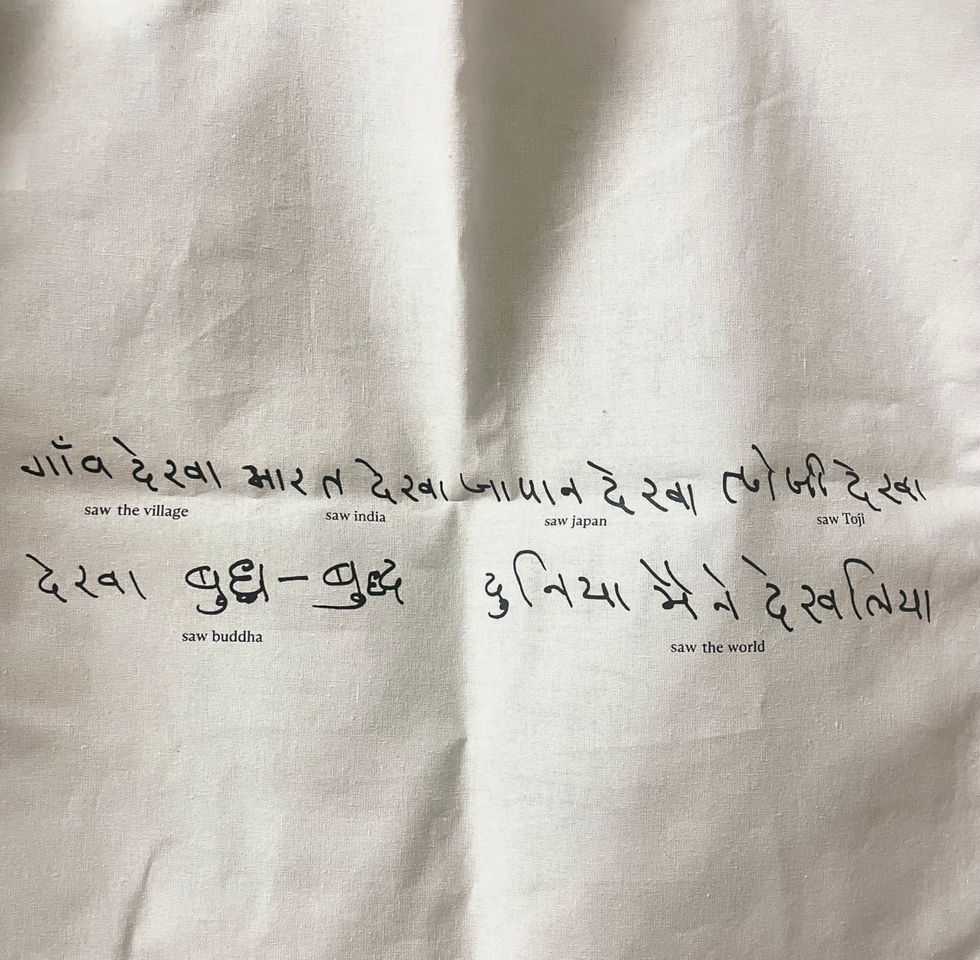 गाँव देखा भारत देखा जापान देखा तोजी देखा
saw the village saw india saw japan saw Toji
देखा बुध्ध - बुद्ध दुनिया मैने देख लिया
saw buddha saw the world